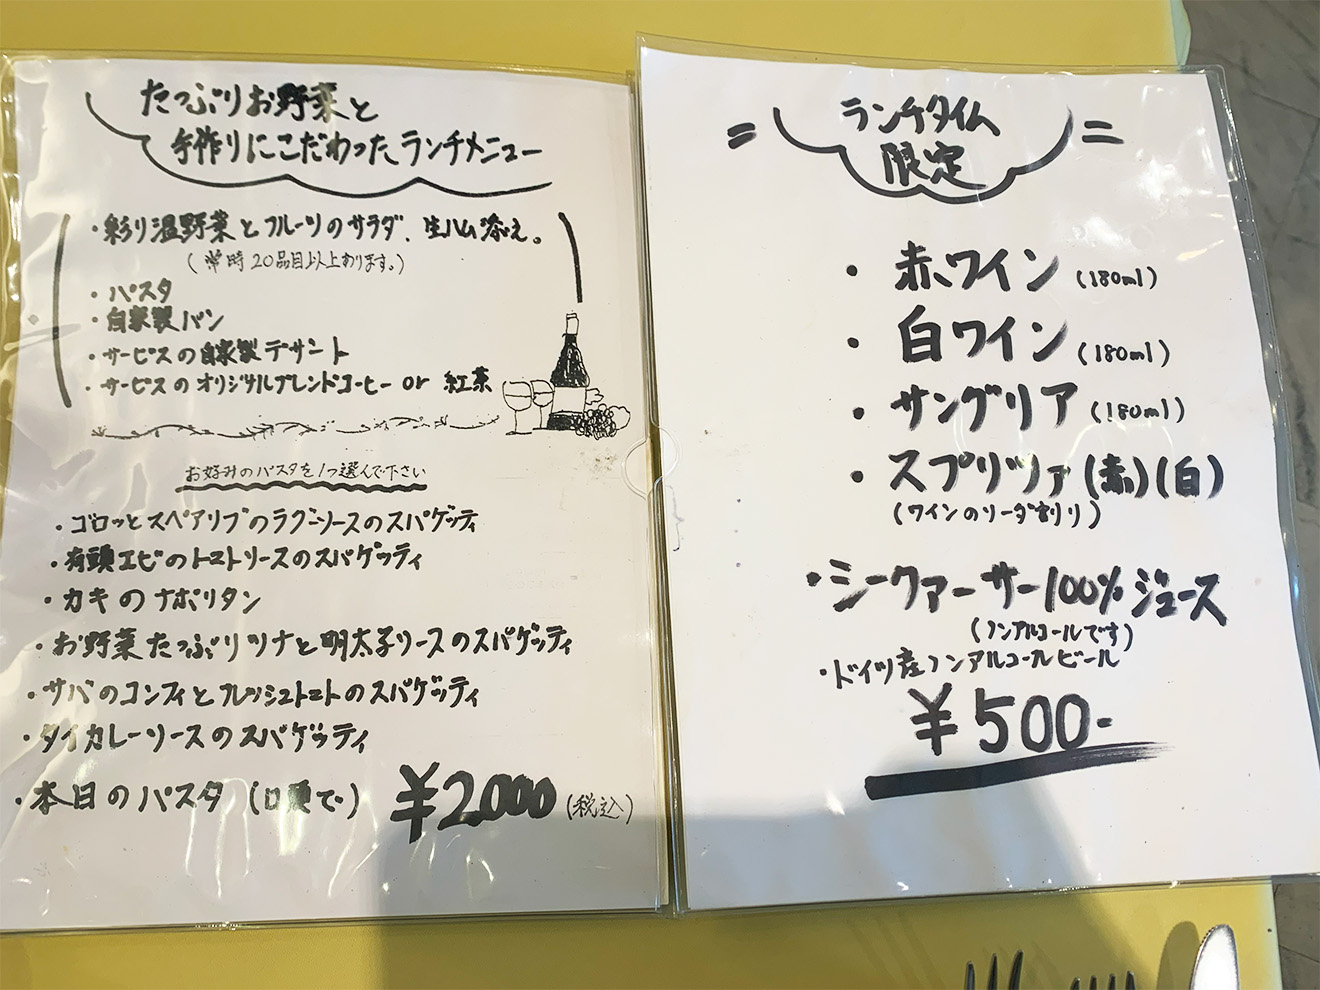 たっぷりお野菜と
手作りにこだわったランチメニュー
・彩り温野菜とフルーツのサラダ、生ハム添え。
(常時20品目以上あります。)
・パスタ
・自家製パン
・サービスの自家製デザート
・サービスのオリジナルブレンドコーヒー or 紅茶
お好みのパスタを1つ選んで下さい
・ゴロッとスペアリブのラグーソースのスパゲッティ
・有頭エビのトマトソースのスパゲッティ
・カキのナポリタン
・お野菜たっぷりツナと明太子ソースのスパゲッティ
・サバのコンフィとフレッシュトマトのスパゲッティ
・タイカレーソースのスパゲッティ
・本日のパスタ (口頭で) ¥2,000 (税込)
ランチタイム
限定
・赤ワイン (180ml)
・白ワイン (180ml)
・サングリア (180ml)
・スプリッツァ (赤)(白)
(ワインのソーダ割り)
・シークァーサー100%ジュース
(ノンアルコールです)
・ドイツ産ノンアルコールビール
¥500-